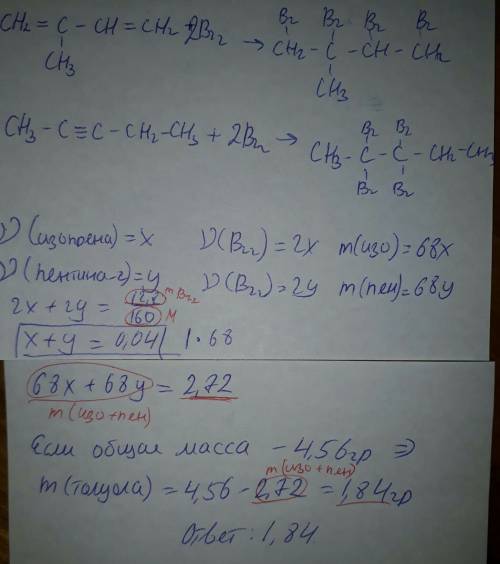 CH₂ = C – CH = CH₂ 2Br₂ → CH₂ – C – CH – CH₂
Br Br Br Br
CH₃ CH₃
CH₃ – C ≡ C – CH₂ – CH₃ + 2Br₂ → CH₃ – C – C – CH₂ – CH₃
Br Br
Br Br
ν (изопрена) = x ν(Br₂) = 2x m(изо) = 68x
ν (пентина-2) = y ν(Br₂) = 2y m(пен) = 68y
2x + 2y = 12,8 m Br₂
160 M
x + y = 0,04 | · 68
68x + 68y = 2,72
m (изо + пен)
Если общая масса – 4,56гр ⇒
m (изо + пен)
m (толуола) = 4,56 – 2,72 = 1,84гр
Ответ: 1,84